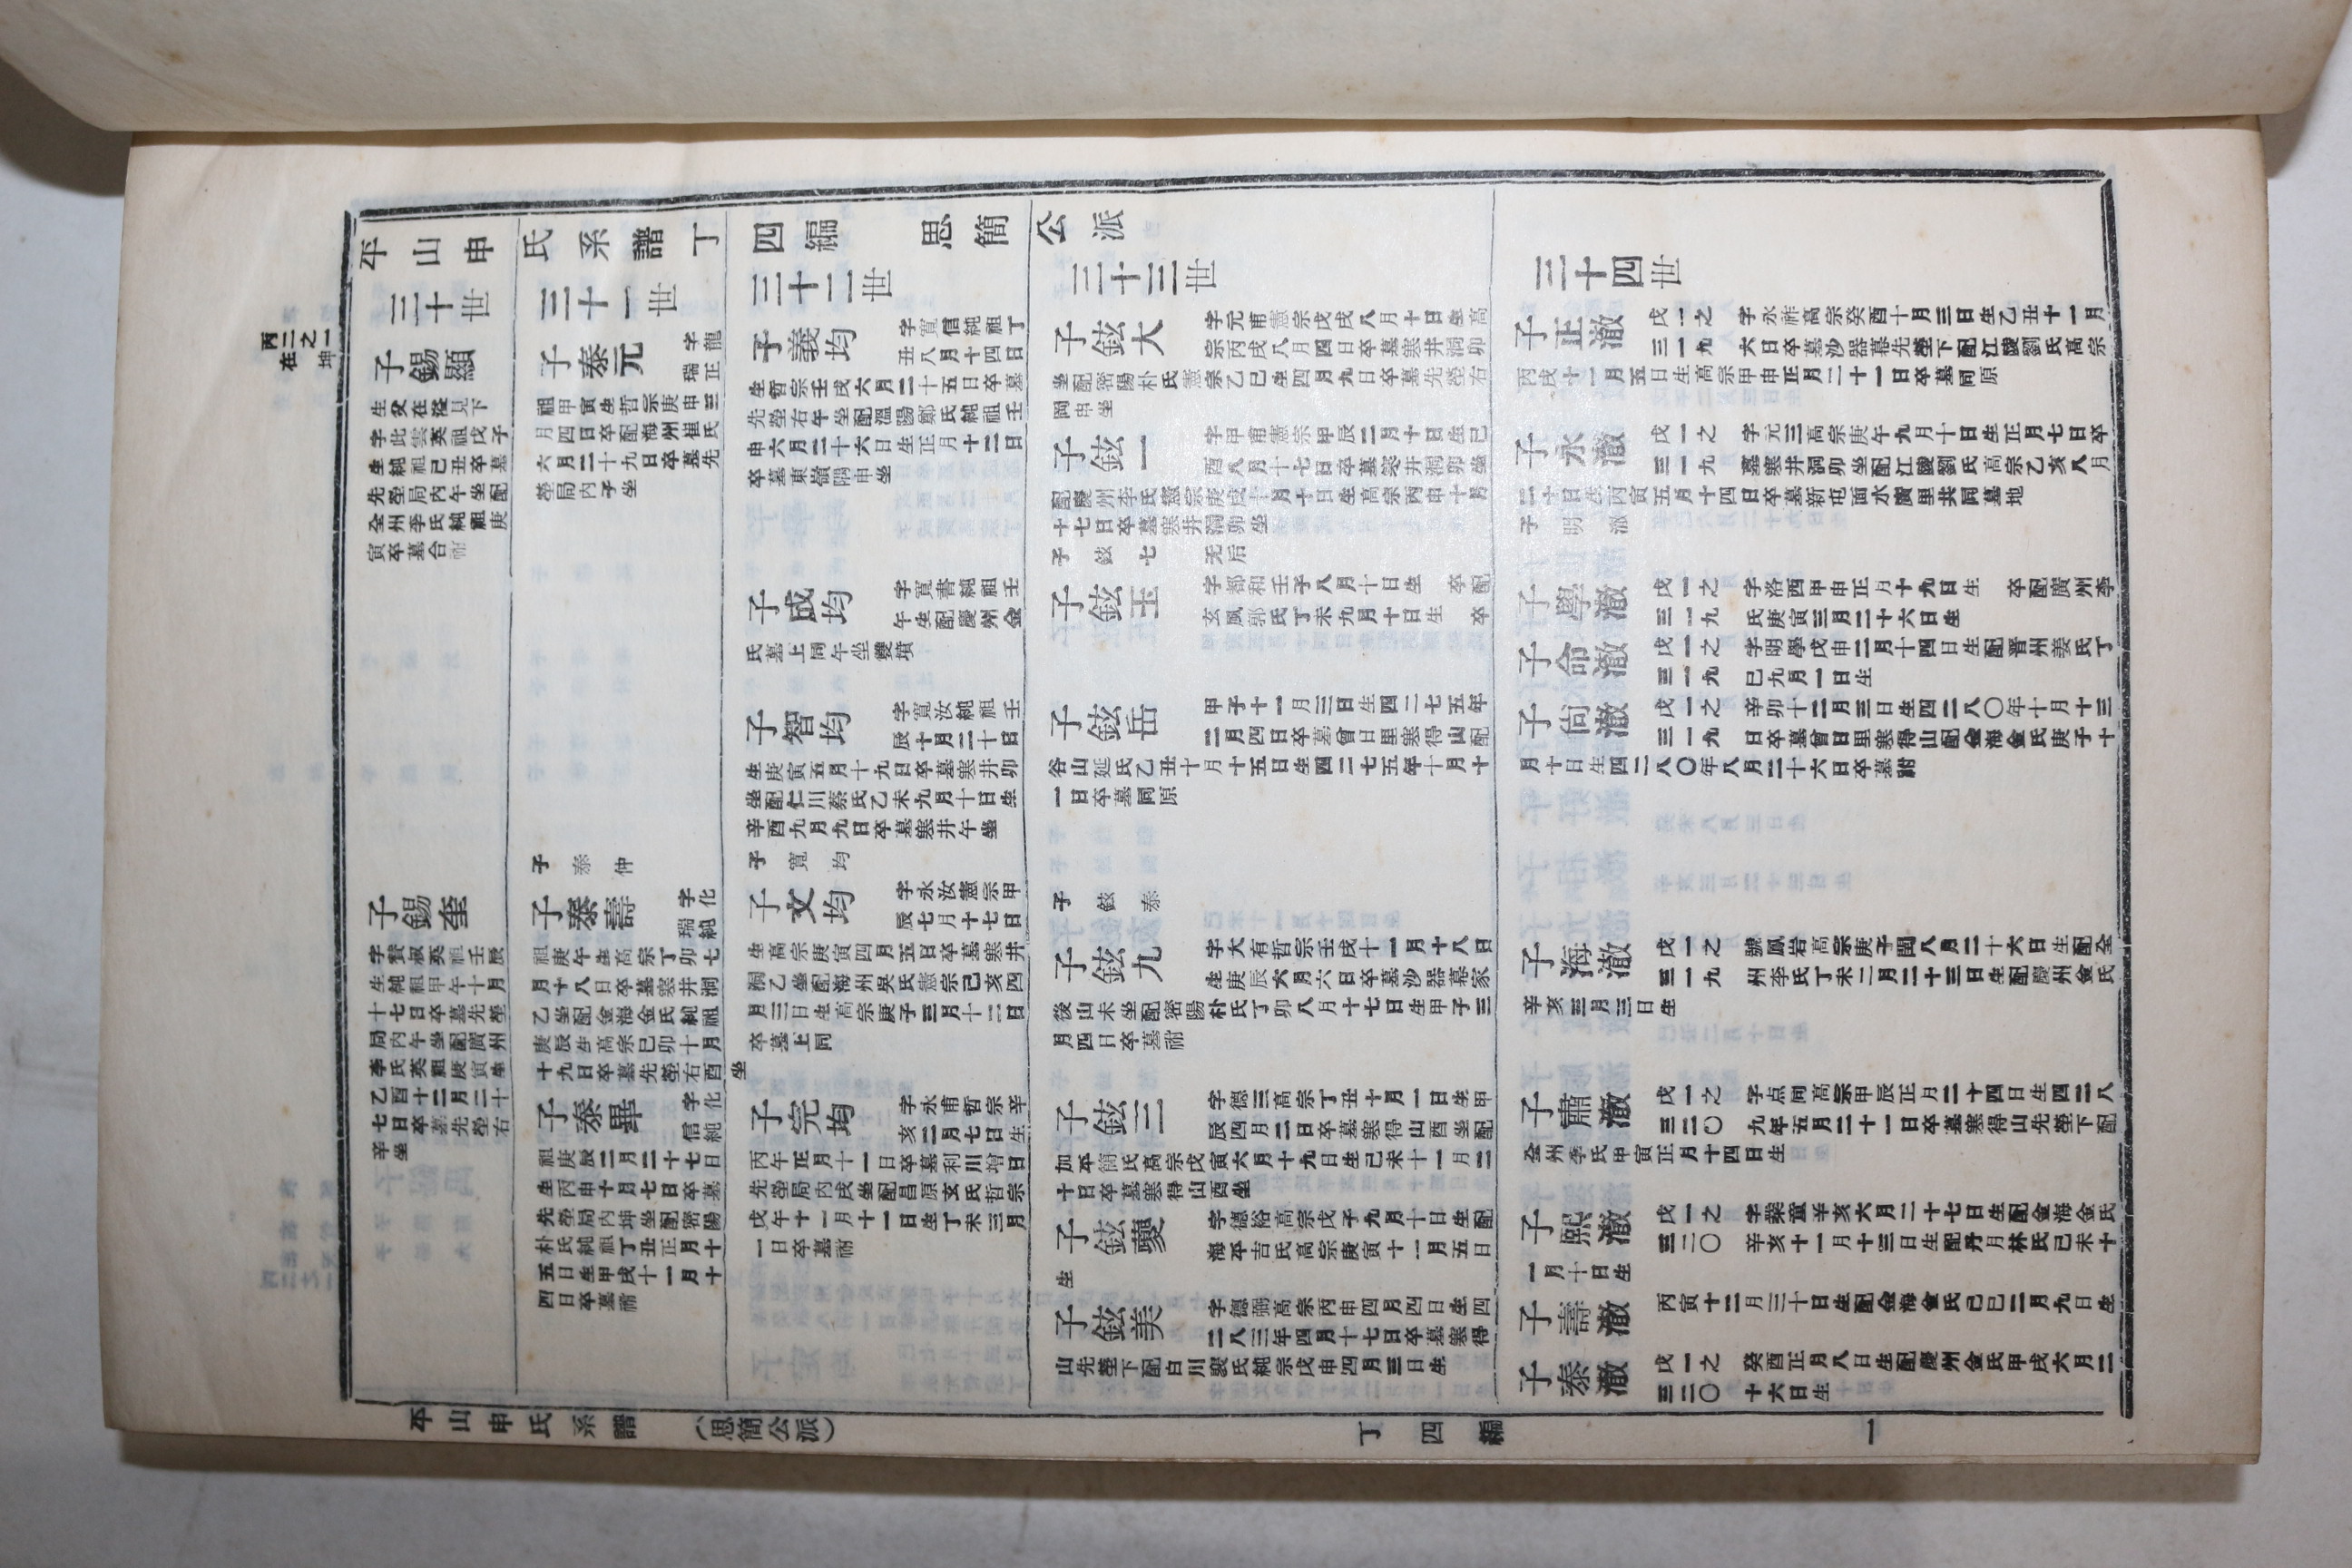 丙二之一
在坤
平山申氏系譜丁四編 思簡公派
三十世
子錫顯
生父在溢見下
字此雲英祖戊子
生純祖己丑卒墓
先塋局內午坐配
全州李氏純祖庚
寅卒墓合祔
子錫奎
字賛叔英祖壬辰
生純祖甲午十月
十七日卒墓先塋
局內午坐配廣州
李氏英祖庚寅生
乙酉十二月二十
七日卒墓先塋右
辛坐
三十一世
子泰元
字龍
瑞正
祖甲寅生哲宗庚申三
月四日卒配海州崔氏
六月二十九日卒墓先
塋局內子坐
子泰仲
子泰壽
字化
瑞純
祖庚午生高宗丁卯七
月十八日卒墓寒井洞
乙坐配金海金氏純祖
庚辰生高宗己卯十月
十九日卒墓先塋右酉
坐
子泰畢
字化
信純
祖庚辰二月二十七日
生丙申十月七日卒墓
先塋局內坤坐配密陽
朴氏純祖丁丑正月十
五日生甲戌十一月十
四日卒墓祔
三十二世
子義均
字寬信純祖丁
丑八月十四日
生哲宗壬戌六月二十五日卒墓
先塋右午坐配溫陽鄭氏純祖壬
申六月二十六日生正月十二日
卒墓東嶺隅申坐
子成均
字寬書純祖壬
午生配慶州金
氏墓上同午坐雙墳
子智均
字寬汝純祖壬
辰十月二十日
生庚寅五月十九日卒墓寒井卯
坐配仁川蔡氏乙未九月十日生
辛酉九月九日卒墓寒井午坐
子寬均
子文均
字永汝憲宗甲
辰七月十七日
生高宗庚寅四月五日卒墓寒井
洞乙坐配海州吳氏憲宗己亥四
月三日生高宗庚子三月十二日
卒墓上同
子完均
字永甫哲宗辛
亥二月七日生
丙午正月十一日卒墓利川增日
先塋局內戌坐配昌原玄氏哲宗
戊午十一月十一日生丁未三月
一日卒墓祔
三十三世
子鉉大
字元甫憲宗戊戌八月十日生高
宗丙戌八月四日卒墓寒井洞卯
坐配密陽朴氏憲宗乙巳生四月九日卒墓先塋右
岡申坐
子鉉一
字甲甫憲宗甲辰二月十日生己
酉八月十七日卒墓寒井洞卯坐
配慶州李氏憲宗庚戌十月十日生高宗丙申十月
十七日卒墓寒井洞卯坐
子鉉七
无后
子鉉玉
字都和壬子八月十日生 卒配
玄風郭氏丁未九月十日生 卒
子鉉岳
甲子十一月三日生四二七五年
二月四日卒墓曾日里寒得山配
谷山延氏乙丑十月十五日生四二七五年十月十
一日卒墓同原
子鉉泰
子鉉九
字大有哲宗壬戌十一月十八日
生庚辰六月六日卒墓沙器幕家
後山未坐配密陽朴氏丁卯八月十七日生甲子三
月四日卒墓祔
子鉉三
字德三高宗丁丑十月一日生甲
辰四月二日卒墓寒得山酉坐配
加平簡氏高宗戊寅六月十九日生己未十一月二
十日卒墓寒得山酉坐
子鉉夔
字德裕高宗戊子九月十日生配
海平吉氏高宗庚寅十一月五日
生
子鉉美
字德弼高宗丙申四月四日生四
二八三年四月十七日卒墓寒得
山先塋下配白川裵氏純宗戊申四月三日生
三十四世
子正澈
戊一之
三一九
字永祚高宗癸酉十月三日生乙丑十一月
六日卒墓沙器幕先塋下配江陵劉氏高宗
丙戌十一月五日生高宗甲申正月二十一日卒墓同原
子永澈
戊一之
三一九
字元三高宗庚午九月十日生正月七日卒
墓寒井洞卯坐配江陵劉氏高宗乙亥八月
二十日生丙寅五月十四日卒墓新屯面水廣里共同墓地
子明澈
子學澈
戊一之
三一九
字洛西甲申正月十九日生 卒配廣州李
氏庚寅三月二十六日生
子命澈
戊一之
三一九
字明學戊申二月十四日生配晋州姜氏丁
巳九月一日生
子尙澈
戊一之
三一九
辛卯十二月三日生四二八〇年十月十三
日卒墓曾日里寒得山配金海金氏庚子十
月十日生四二八〇年八月二十六日卒墓祔
子海澈
戊一之
三一九
號鳳岩高宗庚子閏八月二十六日生配全
州李氏丁未二月二十三日生配慶州金氏
辛亥三月三日生
子肅澈
戊一之
三二〇
字点同高宗甲辰正月二十四日生四二八
九年五月二十一日卒墓寒得山先塋下配
全州李氏甲寅正月十四日生
子熙澈
戊一之
三二〇
字業童辛亥六月二十七日生配金海金氏
辛亥十一月十三日生配丹月林氏己未十
一月十日生
子壽澈
丙寅十二月三十日生配金海金氏己巳二月九日生
子泰澈
戊一之
三二〇
癸酉正月八日生配慶州金氏甲戌六月二
十六日生
平山申氏系譜 (思簡公派) 丁四編 一